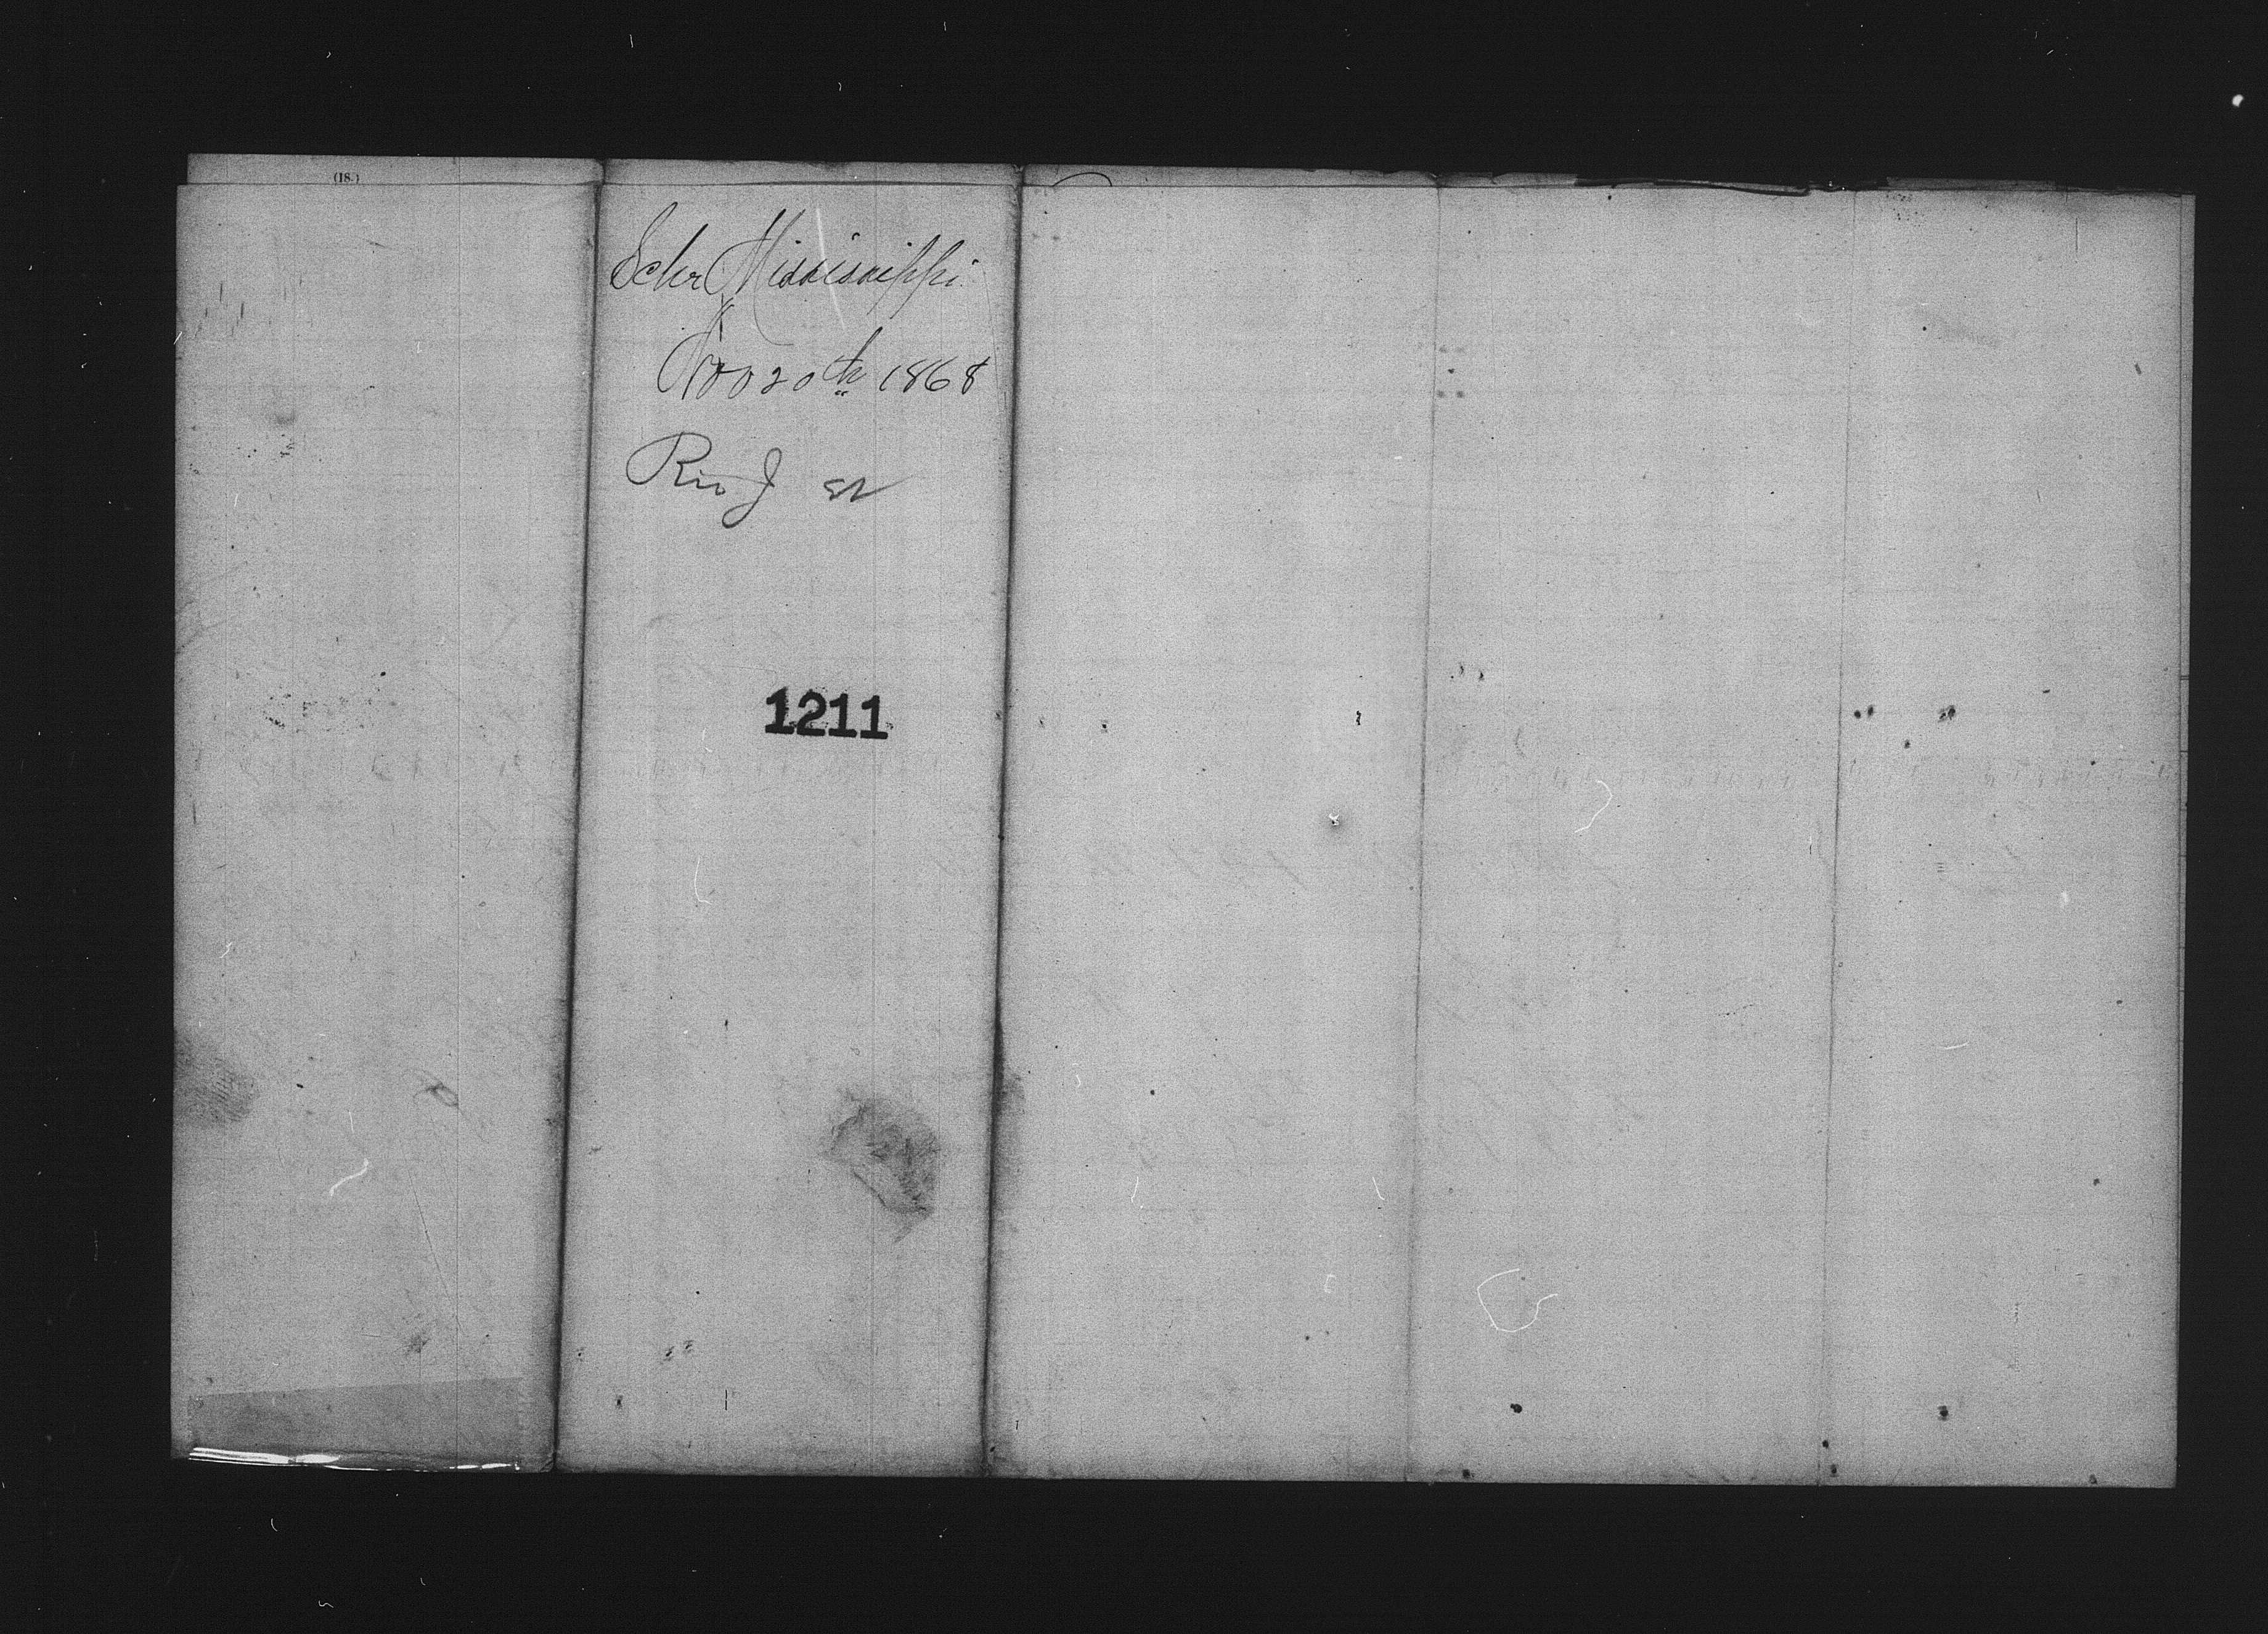 (18.)
Schr Mississippi
Nov 20th 1868
Rio J
1211